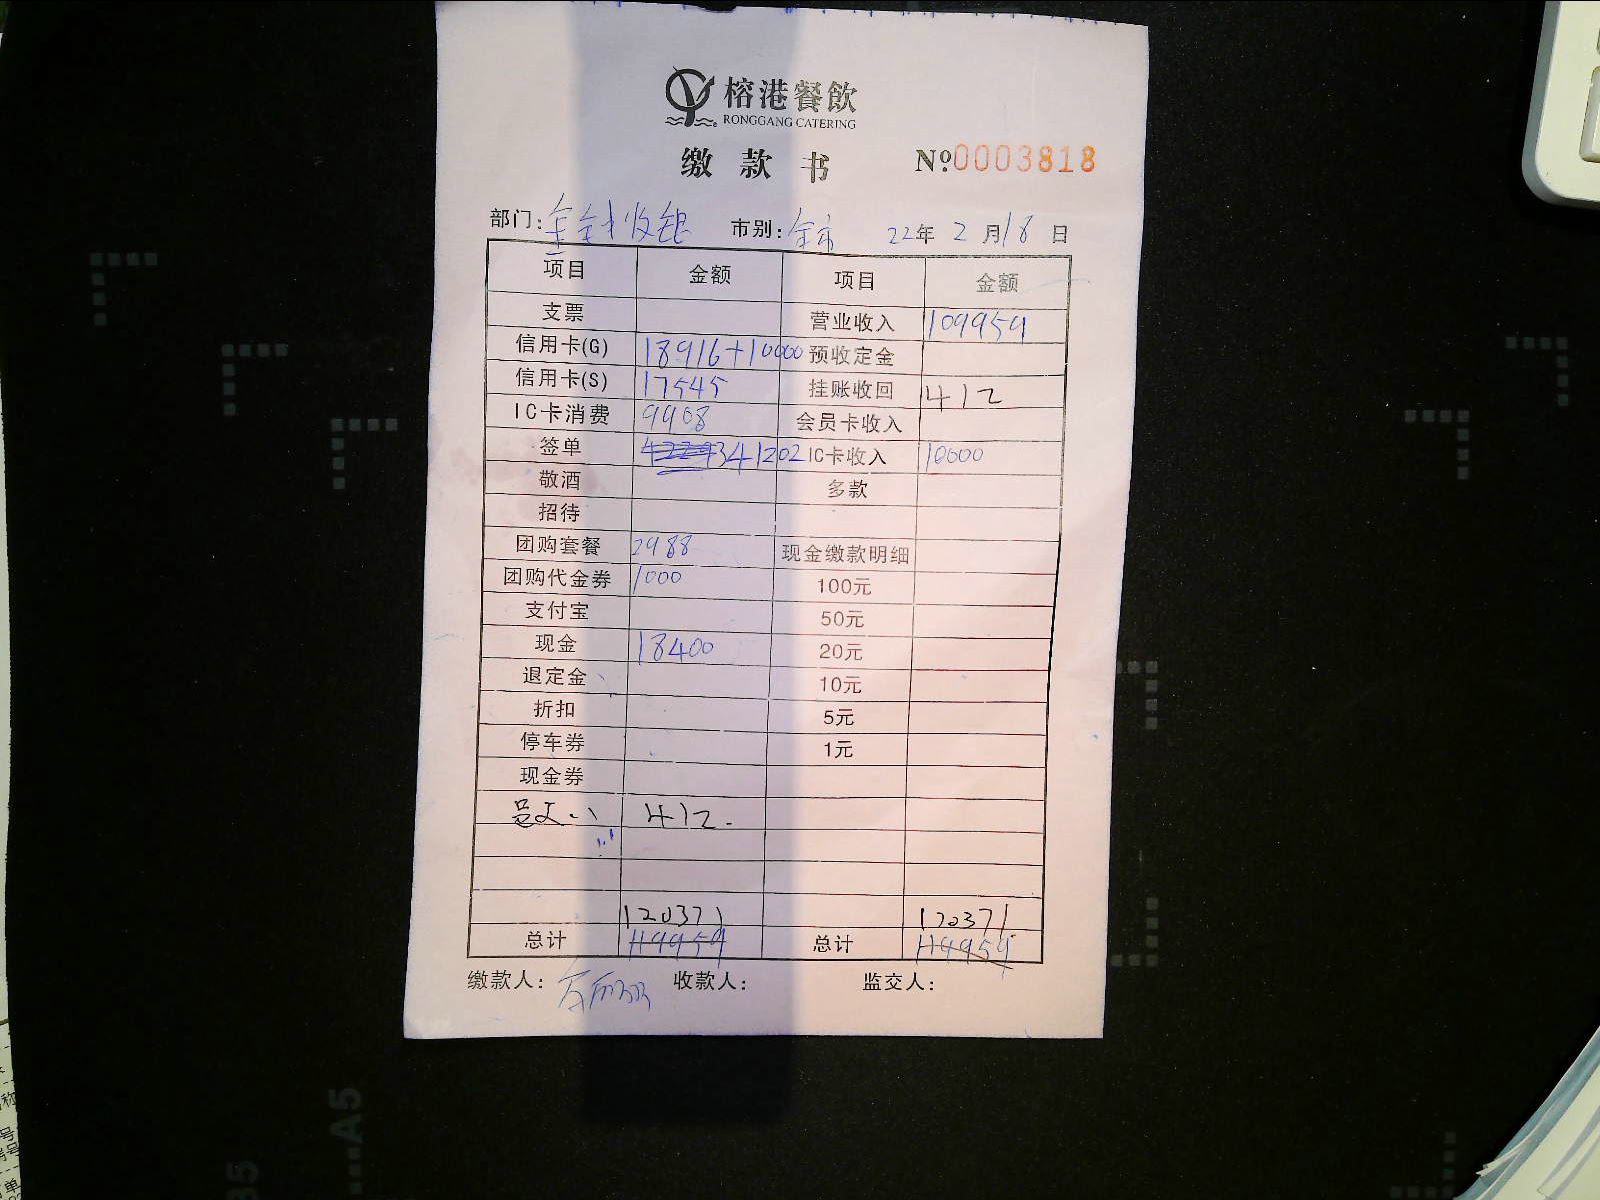 榕港餐飲
RONGGANG CATERING
缴款书 №0003818
部门: 收银 市别: 全市 22年 2月18日
项目 金额 项目 金额
支票 营业收入 109959
信用卡(G) 18916+10000 预收定金
信用卡(S) 17545 挂账收回 412
IC卡消费 9908 会员卡收入
签单 41202 IC卡收入 10000
敬酒 多款
招待
团购套餐 2988 现金缴款明细
团购代金券 1000 100元
支付宝 50元
现金 18400 20元
退定金 10元
折扣 5元
停车券 1元
现金券
412.
120371 120371
总计 119959 总计 119959
缴款人: 收款人: 监交人:
A5
B5